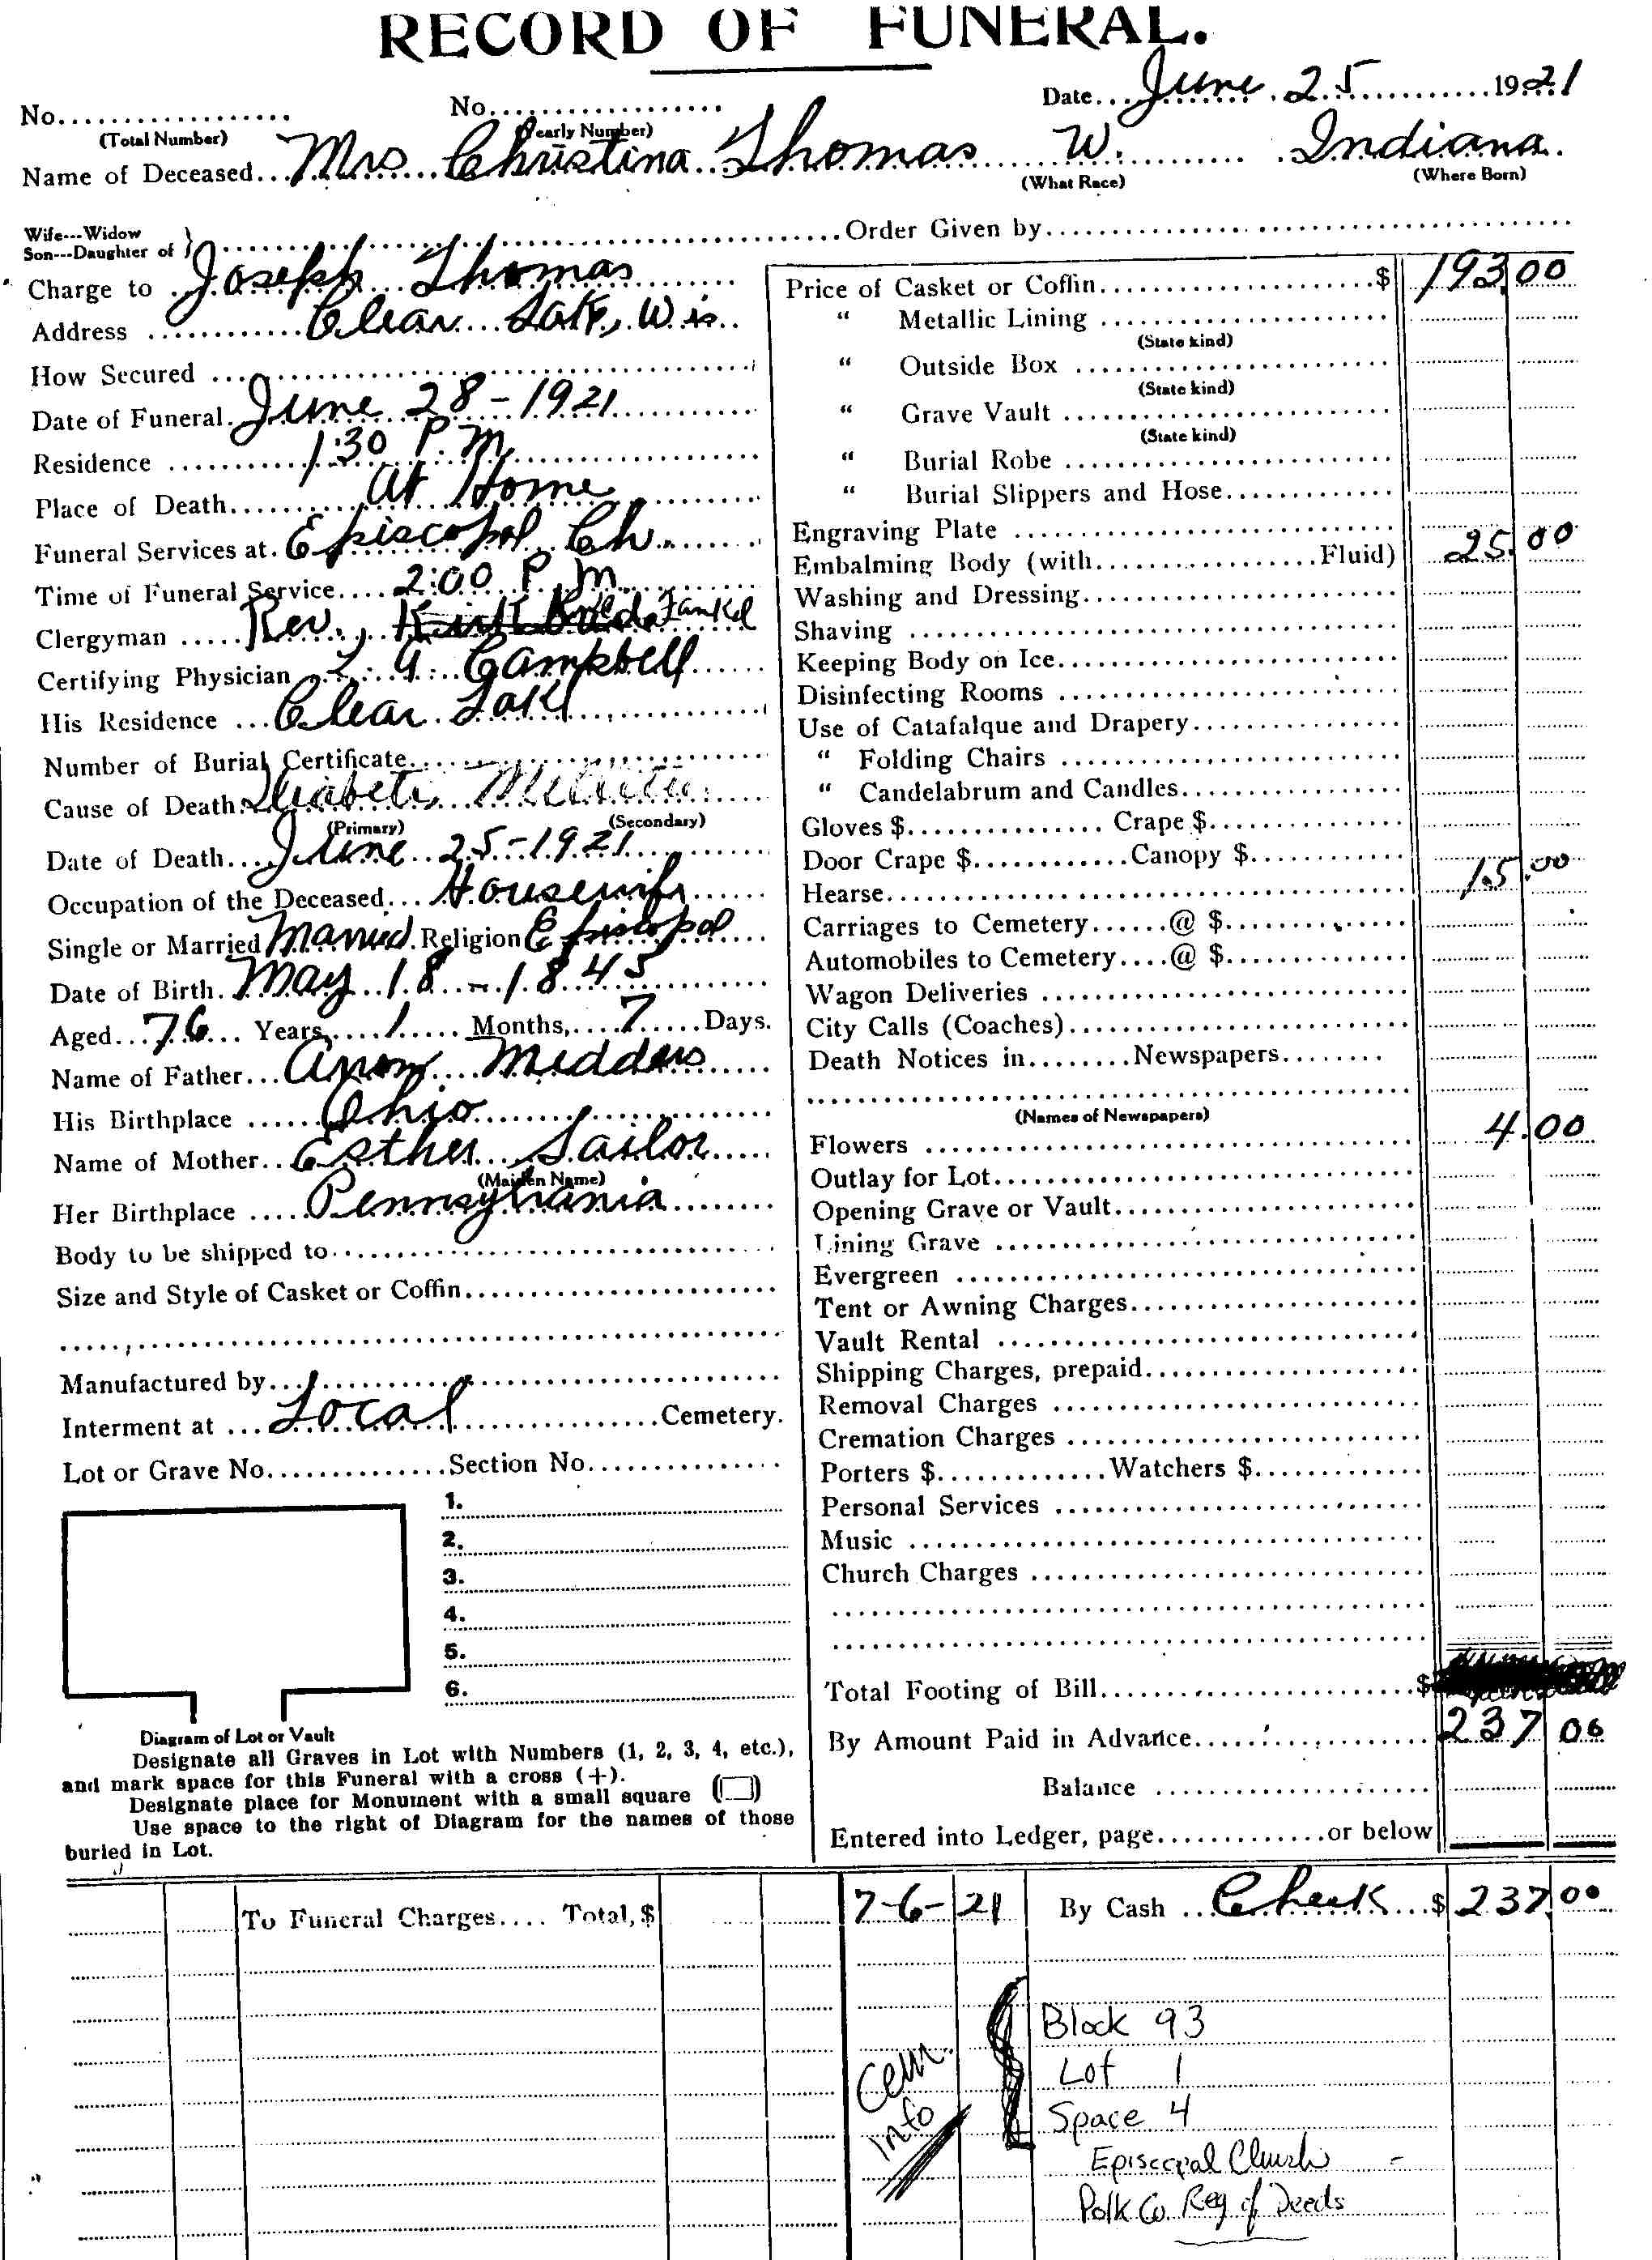 RECORD OF FUNERAL.
Date June 25 1921
No. No.
(Total Number) (Yearly Number)
Name of Deceased Mrs Christina Thomas W. Indiana
(What Race) (Where Born)
Wife---Widow
Son---Daughter of } Order Given by
Charge to Joseph Thomas
Address Clear Lake, Wis
How Secured
Date of Funeral June 28 - 1921
Residence 1:30 P.M.
Place of Death At Home
Funeral Services at Episcopal Ch.
Time of Funeral Service 2:00 P.M
Clergyman Rev.,
Certifying Physician Campbell
His Residence Clear Lake
Number of Burial Certificate
Cause of Death Diabetis
(Primary) (Secondary)
Date of Death June 25 - 1921
Occupation of the Deceased Housewife
Single or Married Married Religion Episcopal
Date of Birth May 18 - 1845
Aged 76 Years, 1 Months, 7 Days.
Name of Father
His Birthplace Ohio
Name of Mother Esther Sailor
(Maiden Name)
Her Birthplace Pennsylvania
Body to be shipped to
Size and Style of Casket or Coffin
Manufactured by
Interment at Local Cemetery.
Lot or Grave No. Section No.
1.
2.
3.
4.
5.
6.
Diagram of Lot or Vault
Designate all Graves in Lot with Numbers (1, 2, 3, 4, etc.),
and mark space for this Funeral with a cross (+).
Designate place for Monument with a small square (□)
Use space to the right of Diagram for the names of those
buried in Lot.
Price of Casket or Coffin $ 193.00
" Metallic Lining
(State kind)
" Outside Box
(State kind)
" Grave Vault
(State kind)
" Burial Robe
" Burial Slippers and Hose
Engraving Plate
Embalming Body (with Fluid) 25.00
Washing and Dressing
Shaving
Keeping Body on Ice
Disinfecting Rooms
Use of Catafalque and Drapery
" Folding Chairs
" Candelabrum and Candles
Gloves $ Crape $
Door Crape $ Canopy $
Hearse 15.00
Carriages to Cemetery @ $
Automobiles to Cemetery @ $
Wagon Deliveries
City Calls (Coaches)
Death Notices in Newspapers
(Names of Newspapers)
Flowers 4.00
Outlay for Lot
Opening Grave or Vault
Lining Grave
Evergreen
Tent or Awning Charges
Vault Rental
Shipping Charges, prepaid
Removal Charges
Cremation Charges
Porters $ Watchers $
Personal Services
Music
Church Charges
Total Footing of Bill $
By Amount Paid in Advance 237 00
Balance
Entered into Ledger, page or below
To Funeral Charges Total, $ 7-6-21 By Cash Check $ 237.00
Cem. Info
Block 93
Lot 1
Space 4
Episcopal Church -
Polk Co. Reg of Deeds